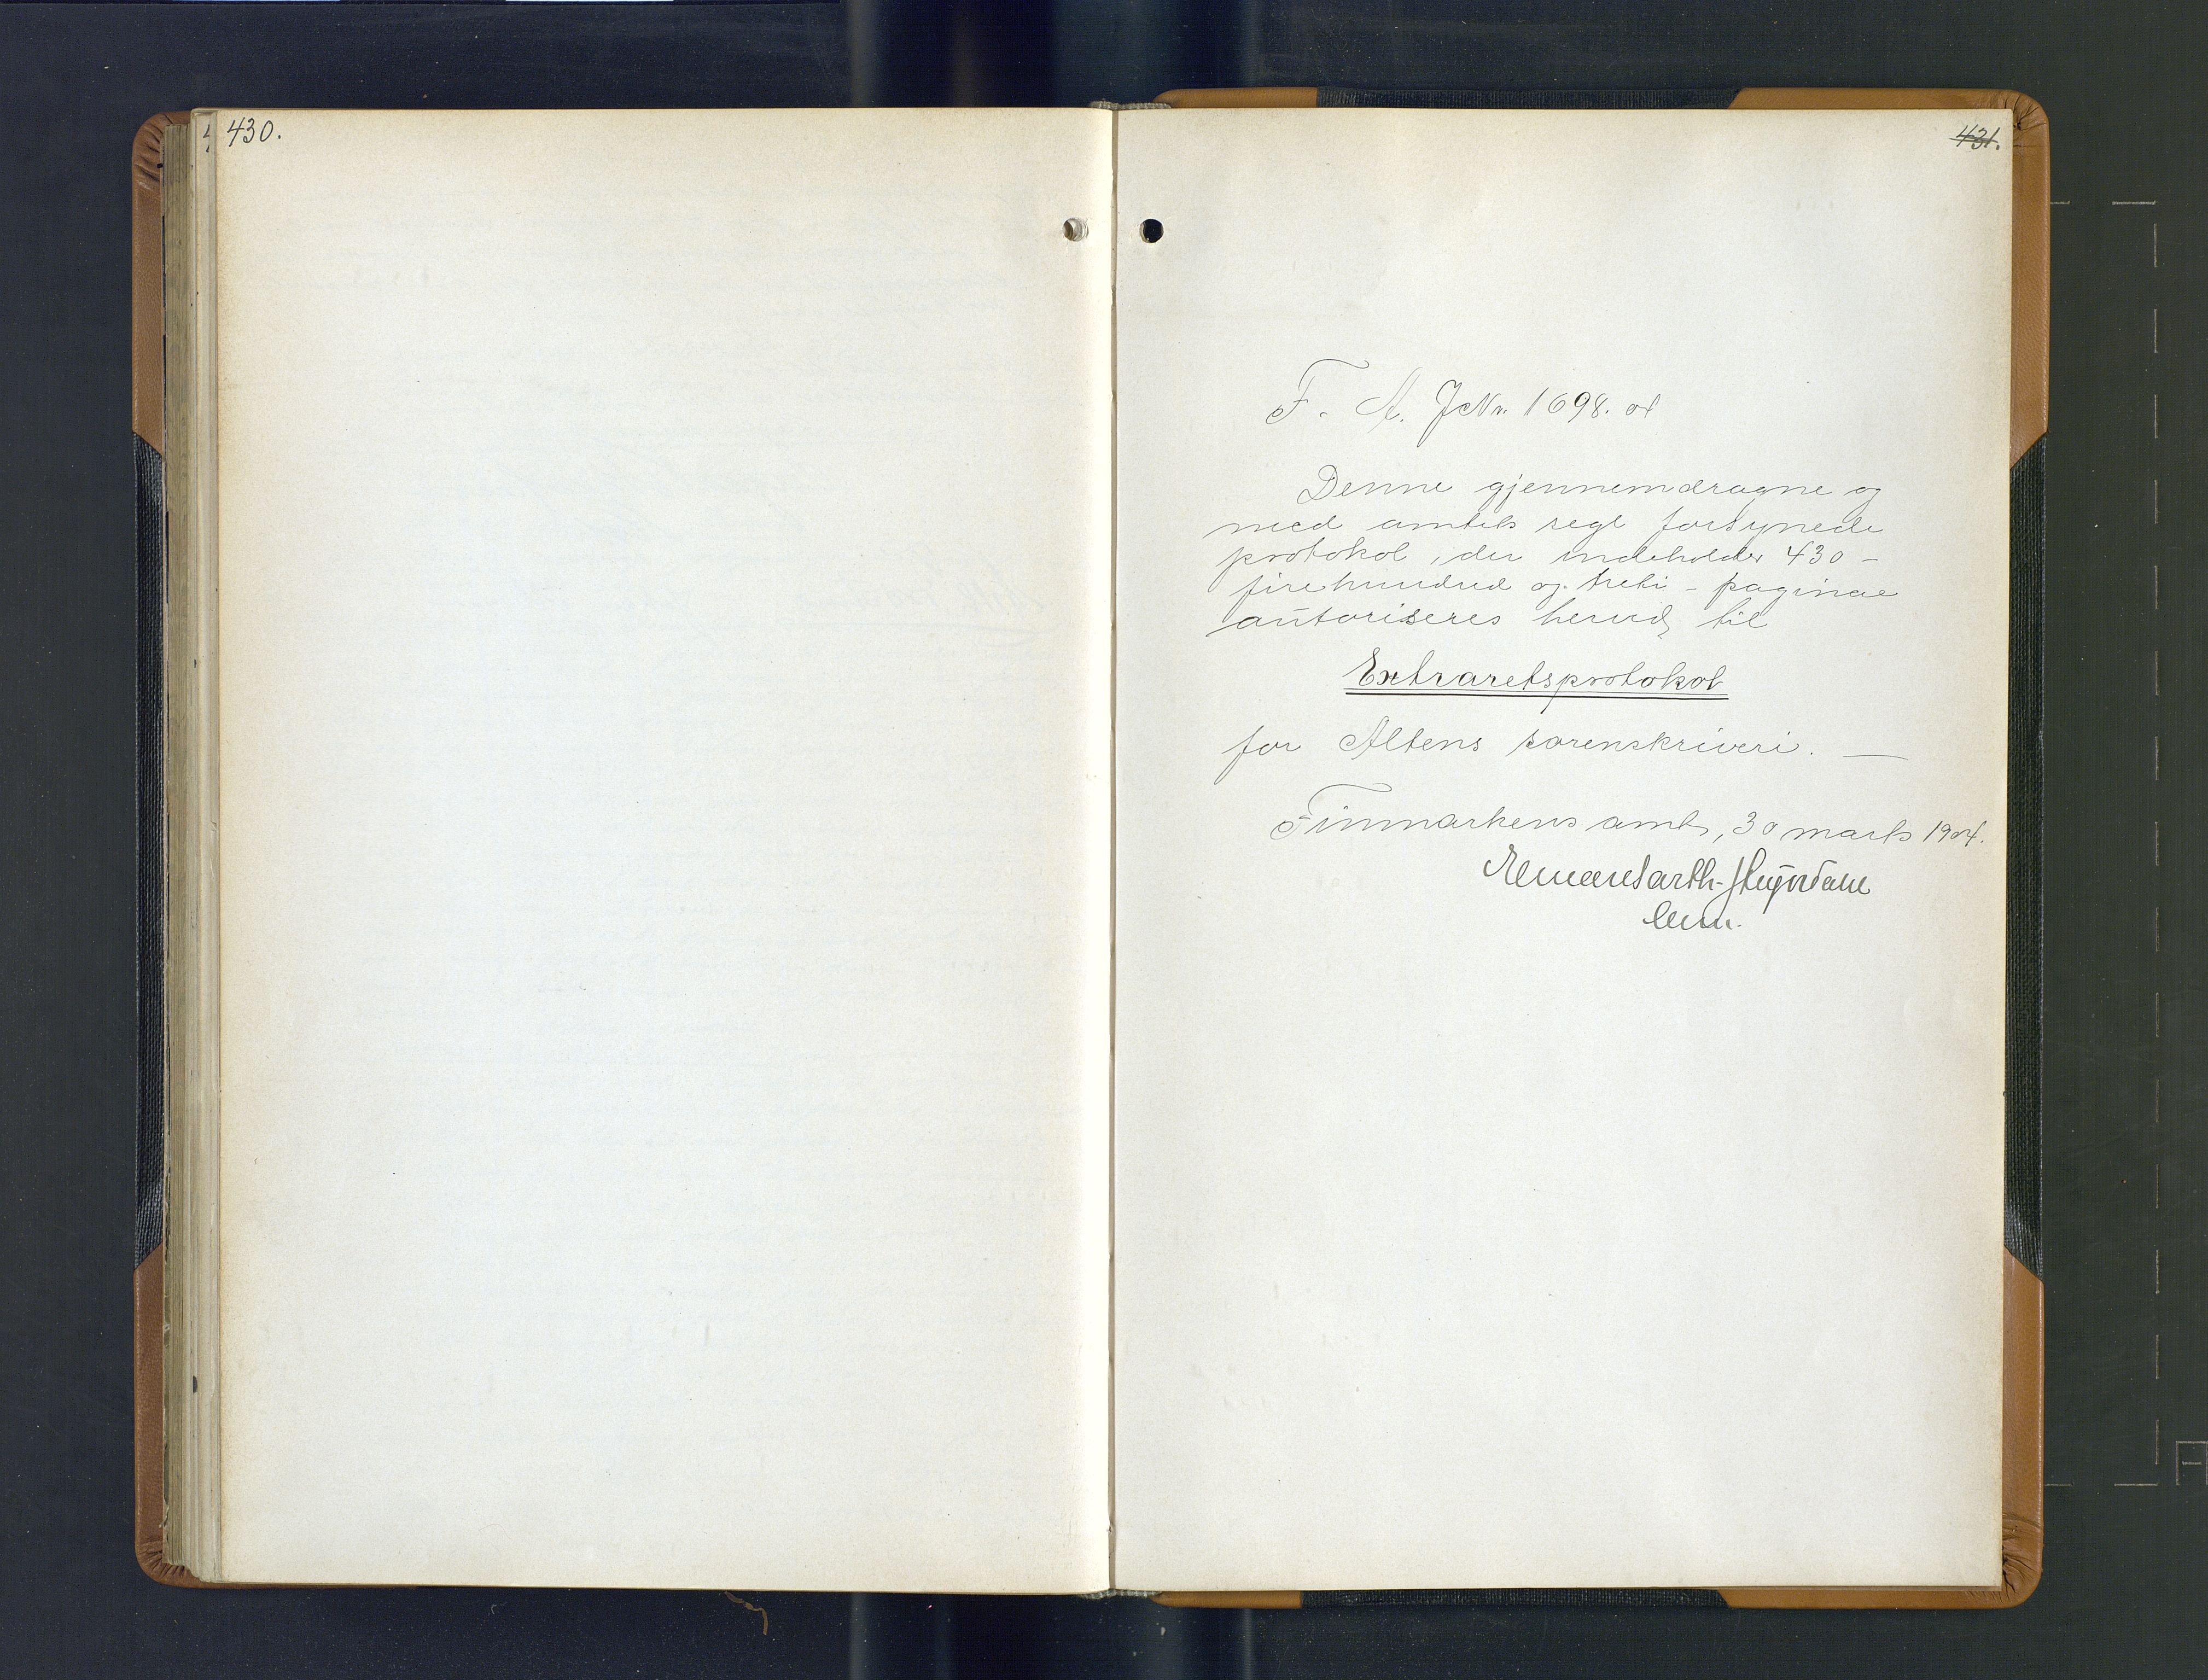 430.
431.
F. A. JNr. 1698. 04
Denne gjennemdragne og
med amtets segl forsynede
protokol, der indeholder 430 –
firehundred og treti – paginae
autoriseres herved til
Extraretsprotokol
for Altens sorenskriveri. —
Finmarkens amt, 30 marts 1904.